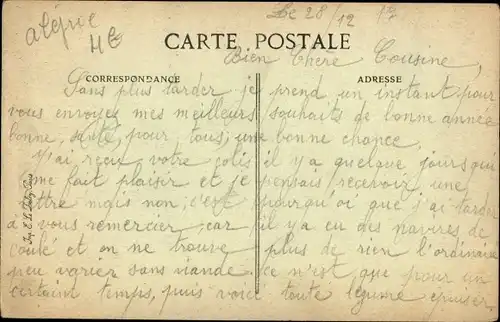 algérie
4€
Le 28/12 17
CARTE POSTALE
Bien Chère Cousine,
CORRESPONDANCE
ADRESSE
Sans plus tarder je prend un instant pour
vous envoyez mes meilleurs souhaits de bonne année
bonne, santé, pour tous, une bonne chance.
J'ai reçu votre colis il y a quelque jours qui
me fait plaisir et je pensais recevoir une
lettre mais non, c'est pourqu'oi que j'ai tarder
à vous remercier, car il y a eu des navires de
coulé et on ne trouve plus de rien l'ordinaire
peu varier sans viande. Ce n'est que pour un
certaint temps, puis voice touté légume épuiser.